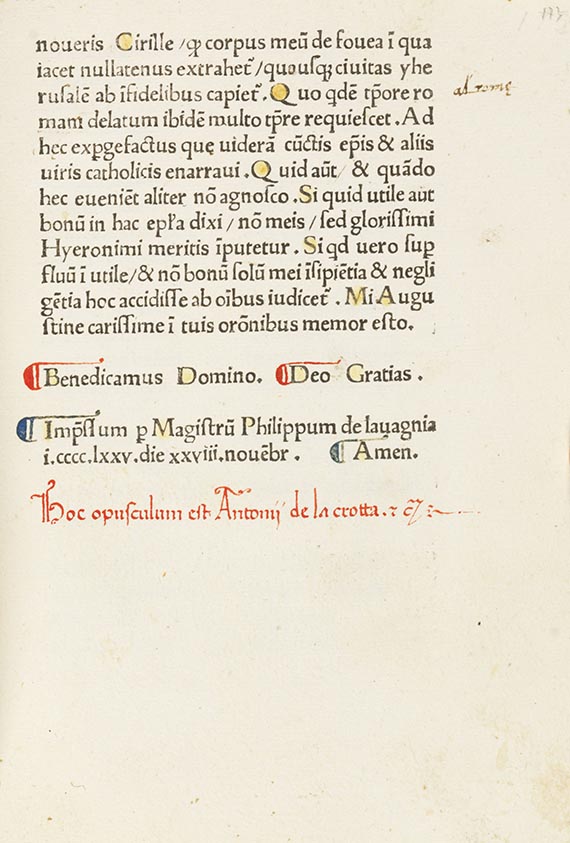 173
noueris Cirille /ꝙ corpus meū de fouea ī qua
iacet nullatenus extrahet᷑ /quousqꝫ ciuitas yhe
rusalē ab īfidelibus capiet᷑. Quo qdē tp̄ore ro
mam delatum ibidē multo tp̄re requiescet. Ad
hec exꝑgefactus quę uiderā cūctis ep̄is & aliis
uiris catholicis enarraui. Quid aūt/ & quādo
hec eueniēt aliter nō agnosco. Si quid utile aut
bonū in hac ep̄ła dixi / nō meis / sed glorissimi
Hyeronimi meritis īputetur. Si qd uero suꝑ
fluū ī utile /& nō bonū solū mei īsipiētia & negli
gētia hoc accidisse ab oībus iudicet᷑. Mi Augu
stine carissime ī tuis orōnibus memor esto.
al rome
Benedicamus Domino. Deo Gratias.
Imp̄ssum ꝑ Magistrū Philippum de lauagnia
i.cccc.lxxv.die xxviii.nouēbr. Amen.
Hoc opusculum est Antonij de la crotta.